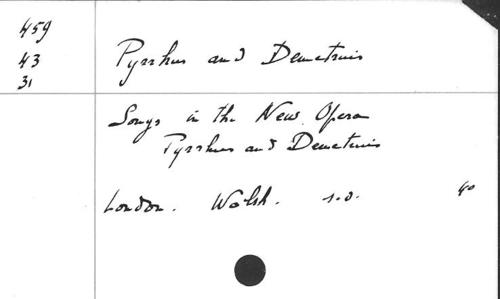 459
43
31
Pyrrhus and Demetrius
Songs in the New Opera
Pyrrhus and Demetrius
London. Walsh. s.d. 40